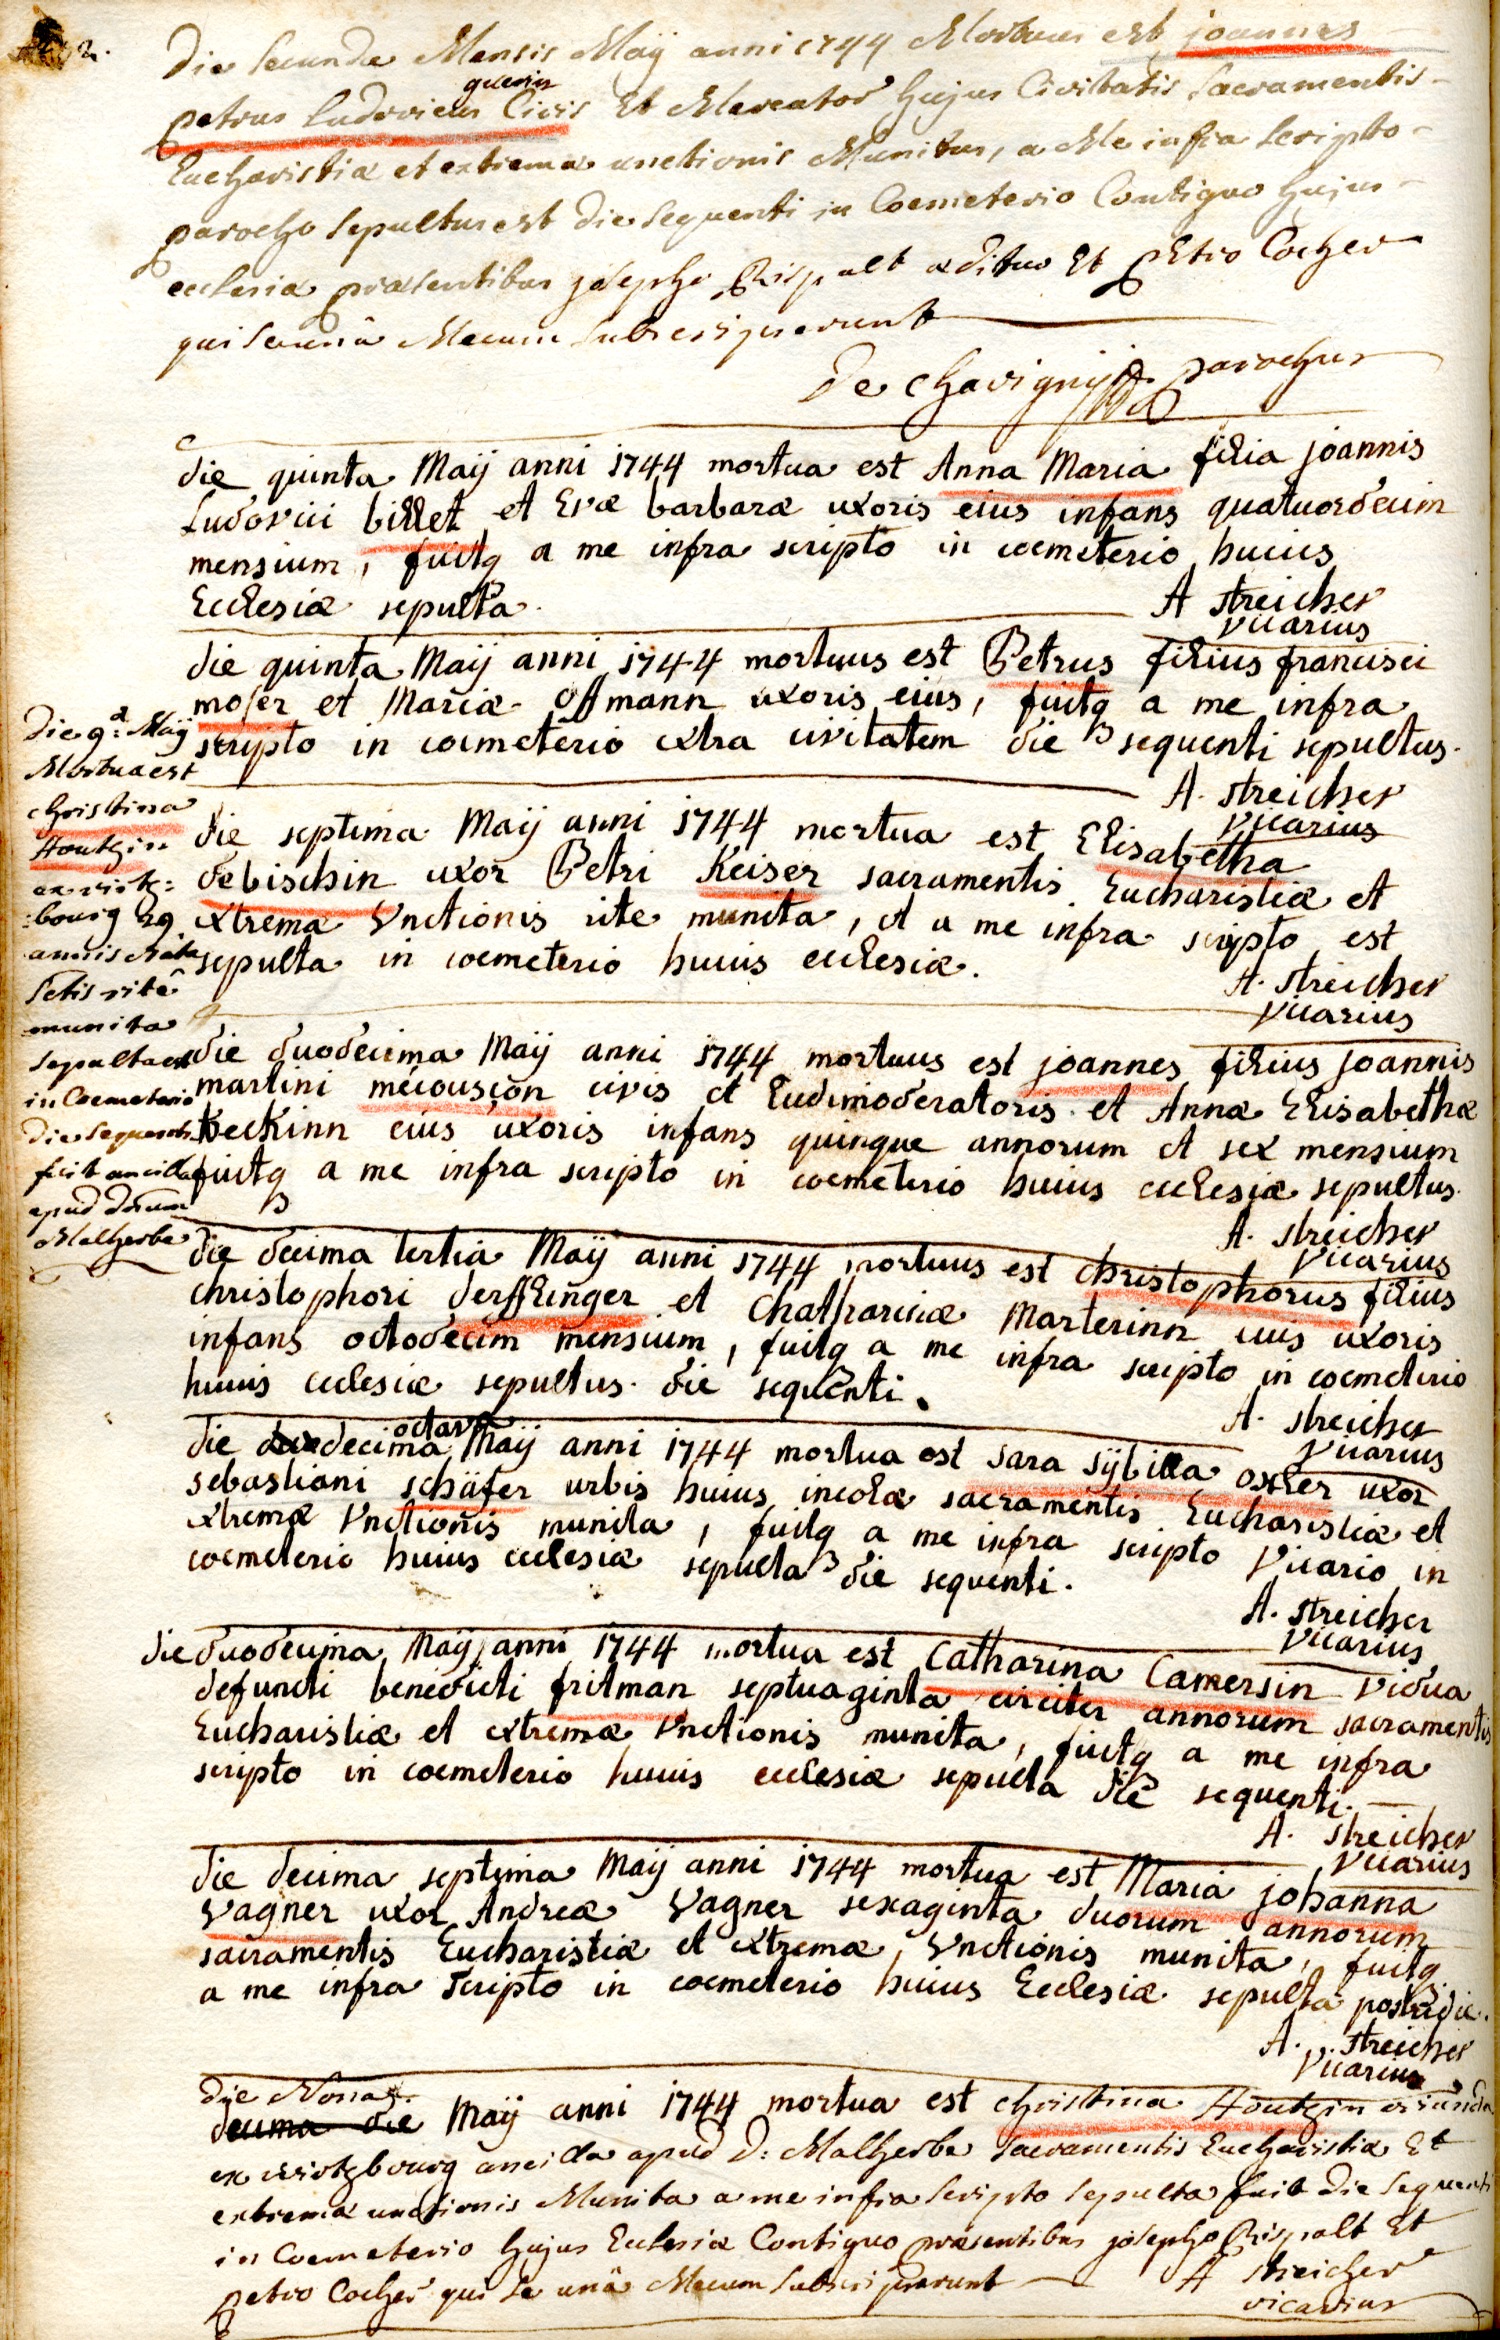 2.
Die secunda Mensis Maÿ anni 1744 Mortuus est joannes
guerin
petrus Ludovicus Civis Et Mercator hujus Civitatis Sacramentis
Eucharistiæ et extremæ unctionis Munitus, a Me infra scripto
parocho sepultus est die sequenti in Coemeterio Contiguo hujus
ecclesiæ præsentibus josepho Rispalt ædituo Et pEtro Cocher
qui se unâ Mecum subscripserunt
De chavigny parochus
die quinta Maij anni 1744 mortua est Anna Maria filia joannis
Ludovici billet et Evæ barbaræ uxoris eius infans quatuordecim
mensium, fuitq a me infra scripto in coemeterio huius
Ecclesiæ sepulta.
A streicher
vicarius
die quinta Maij anni 1744 mortuus est Petrus filius francisci
moser et Mariæ Offmann uxoris eius, fuitq a me infra
scripto in coemeterio extra civitatem die sequenti sepultus.
A. streicher
vicarius
die septima Maij anni 1744 mortua est Elisabetha
debischin uxor Petri Keiser sacramentis Eucharistiæ et
extremæ Vnctionis rite munita, et a me infra scripto est
sepulta in coemeterio huius ecclesiæ.
A. streicher
vicarius
Die 9.a Maÿ
Mortua est
christina
Houtzin
ex virtz:
:bourg 29
annis nata
Sctis ritè
munita
sepulta est
in Coemeterio
die sequenti
fuit ancilla
apud dnum
Malherbe
die duodecima Maij anni 1744 mortuus est joannes filius joannis
martini meiousçon civis et Ludimoderatoris et Annæ Elisabethæ
beckinn eius uxoris infans quinque annorum et sex mensium
fuitq a me infra scripto in coemeterio huius ecclesiæ sepultus.
A. streicher
vicarius
die decima tertia Maij anni 1744 mortuus est christophorus filius
christophori derfflinger et Chatharinæ Marterinn eius uxoris
infans octodecim mensium, fuitq a me infra scripto in coemeterio
huius ecclesiæ sepultus die sequenti.
A. streicher
vicarius
octava
die decima Maij anni 1744 mortua est sara sÿbilla oster uxor
sebastiani schäfer urbis huius incolæ sacramentis Eucharistiæ et
extremæ Vnctionis munita, fuitq a me infra scripto Vicario in
coemeterio huius ecclesiæ sepulta die sequenti.
A. streicher
vicarius
die duodecima Maij anni 1744 mortua est Catharina Camersin vidua
defuncti benedicti fritman septuaginta circiter annorum sacramentis
Eucharistiæ et extremæ Vnctionis munita, fuitq a me infra
scripto in coemeterio huius ecclesiæ sepulta die sequenti.
A. streicher
vicarius
die decima septima Maij anni 1744 mortua est Maria johanna
Vagner uxor Andreæ Vagner sexaginta duorum annorum
sacramentis Eucharistiæ et extremæ Vnctionis munita, fuitq
a me infra scripto in coemeterio huius Ecclesiæ sepulta postridie.
A. streicher
vicarius
die Nona
decima die Maij anni 1744 mortua est christina Houtzin oriunda
ex wirtzbourg ancilla apud D: Malherbe Sacramentis Eucharistiæ Et
extremæ unctionis Munita a me infra scripto sepulta fuit die sequenti
in Coemeterio hujus Ecclesiæ Contiguo præsentibus josepho Rispalt Et
petro Cocher qui se unâ Mecum subscripserunt
A streicher
vicarius